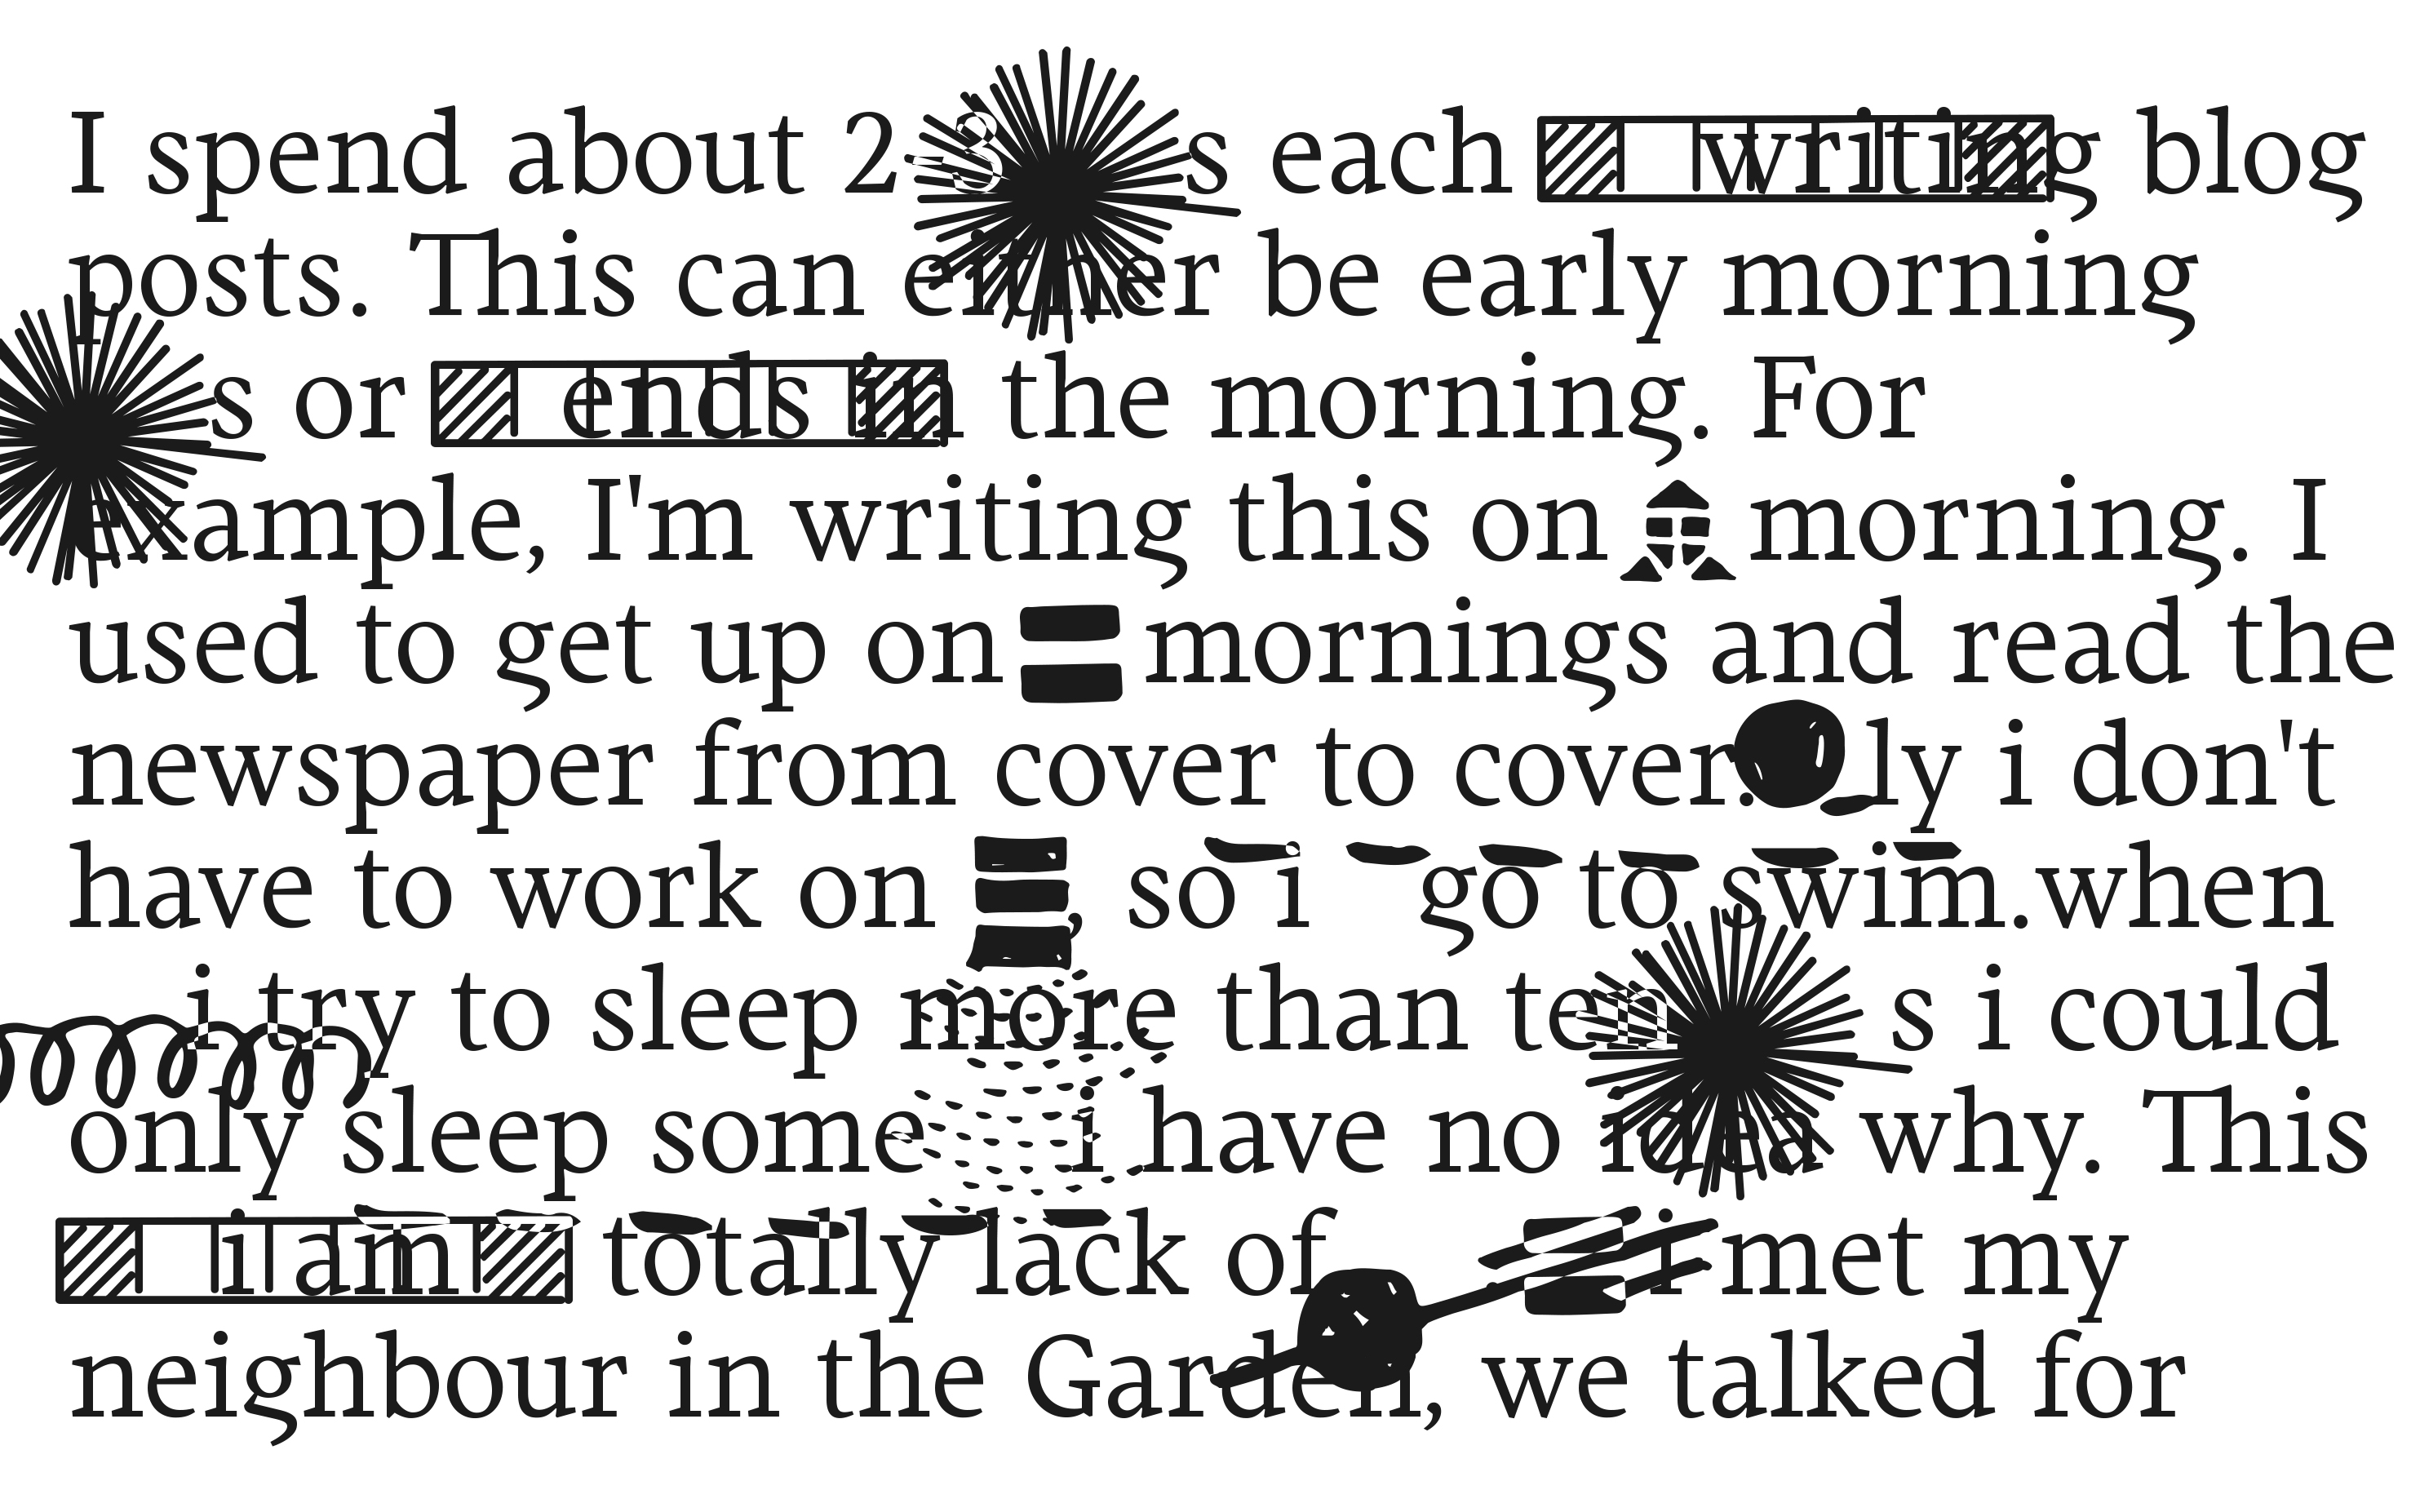 I spend about 2-3 s each writing blog
posts. This can either be early morning
s or ends in the morning. For
example, I'm writing this on morning. I
used to get up on mornings and read the
newspaper from cover to cover. ly i don't
have to work on , so i go to swim.when
i try to sleep more than ten s i could
only sleep some i have no idea why. This
i am totally lack of i met my
neighbour in the Garden, we talked for